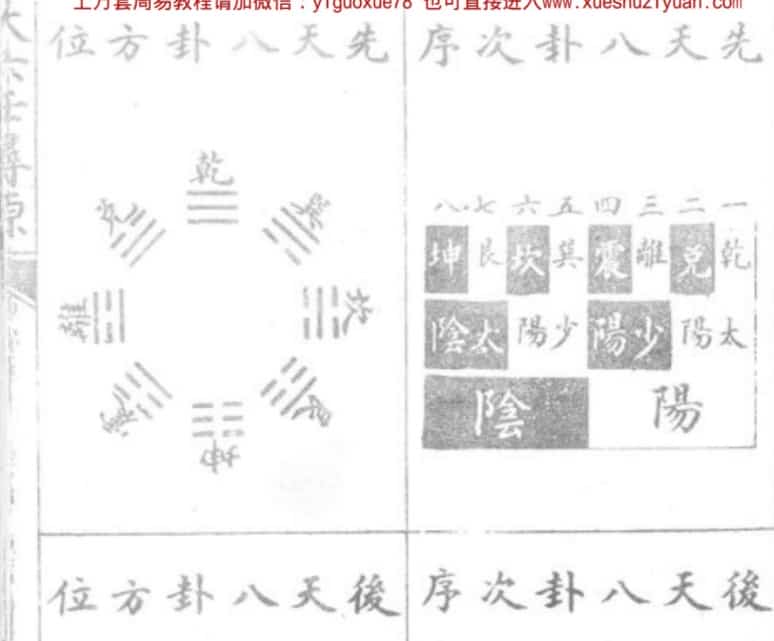 上万套周易教程请加微信：yiguoxue78 也可直接进入www.xueshuziyuan.com
先天八卦次序
一二三四五六七八
乾兌離震巽坎艮坤
太陽少陽少陽太陰
陽陰
先天八卦方位
乾
兌
巽
離
坎
震
艮
坤
後天八卦次序
後天八卦方位
大六壬尋原